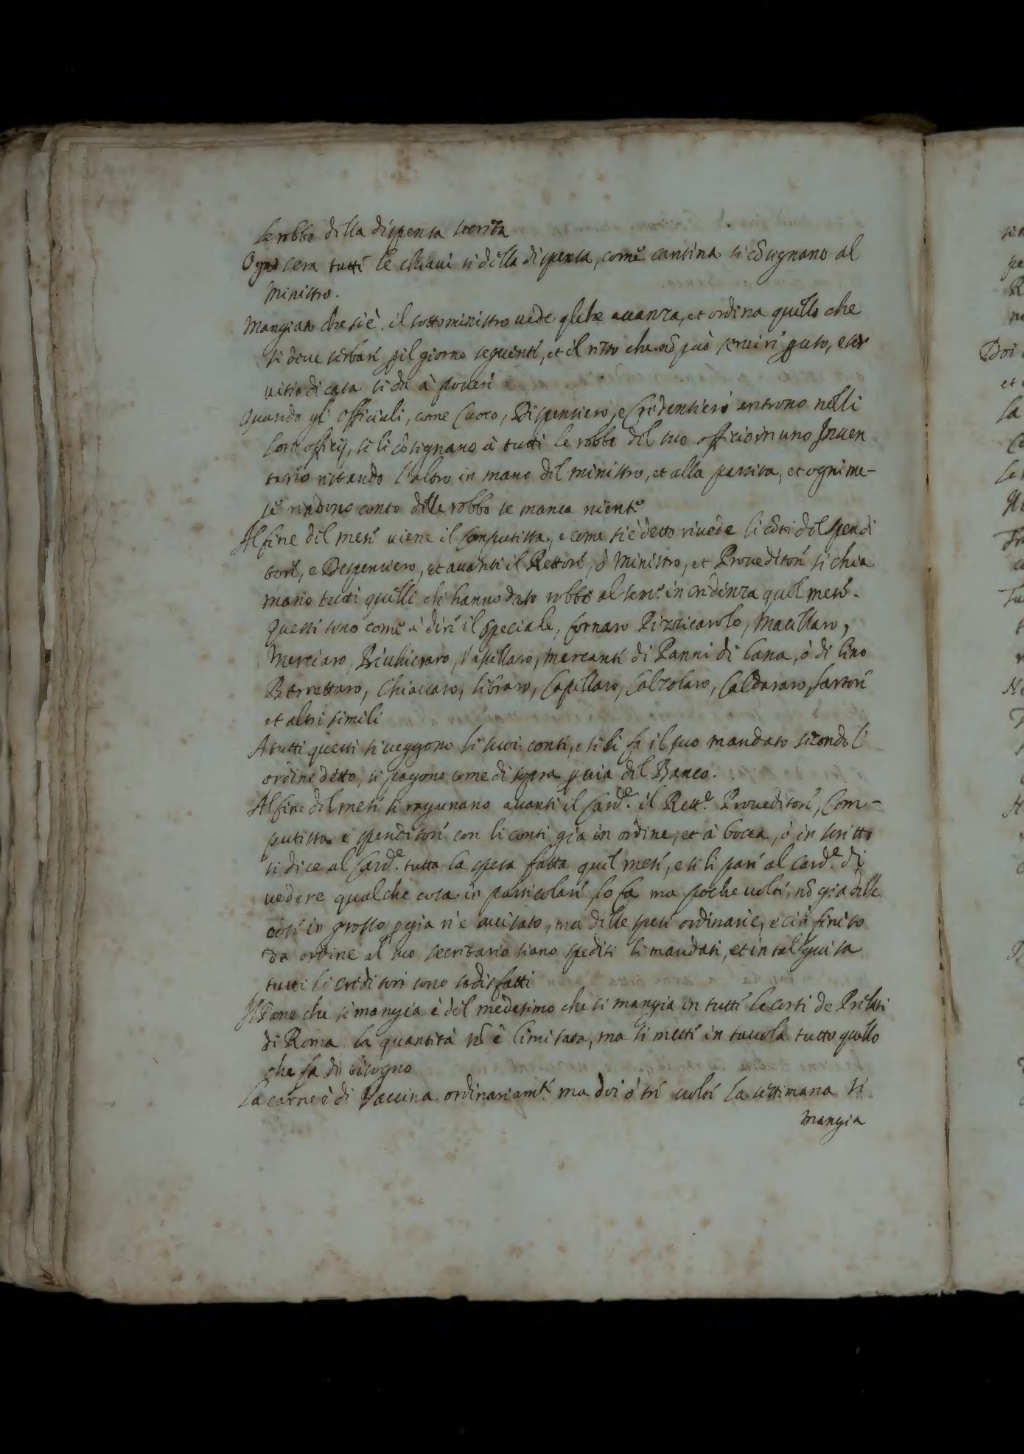 le robbe della dispensa
Ogni sera tutte le chiavi si della dispensa, come cantina si cõsegnano al
Ministro.
Mangiato che si è, il sottoministro vede q̃l che avanza, et ordina quello che
si deve serbare p il giorno seguente, et il resto che nõ può servire p uso, e ser
vitio di casa si dà à poveri
Quando gl' Officiali, come Cuoco, Dispensiero, e Credentiero entrono nelli
loro officij, se li cõsegnano à tutti le robbe del suo officio in uno Inven
tario restando l'altro in mano del ministro, et alla partita, et ogni me-
se rendono conto delle robbe se manca niente
Al fine del mese viene il Computista, e come si è detto rivede li cõti del Spendi
tore, e Despensiero, et avanti il Rettore, ò Ministro, et Proveditore si chia
mano tutti quelli che hanno dato robbe al sem.º in credenza quel mese.
Questi sono come è dire il Speciale, fornaro Pizzicarolo, Macellaro,
Merciaro, Vaschellaro, mercanti di Panni di lana, ò di lino
Berrettaro, Chiavaro, libraro, Capellaro, Calzolaro, Caldararo sartore
et altri simili
A tutti questi si veggono li suoi conti, e si li fa il suo mandato secondo l'
ordine detto, si pagono come di sopra p via del Banco.
Al fine del mese si ragunano avanti il Card.e il Rett.e Proveditore, Com-
putista e spenditore con li conti già in ordine, et à bocca, ò in scritto
si dice al Card.e tutta la spesa fatta quel mese, e si li pare al Card.e di
vedere qualche cosa in particolare lo fa ma poche volte, nõ già delle
cose in grosso p già n'è avisato, ma delle spese ordinarie, e ciò finito
da ordine al suo secretario siano spediti li mandati, et in tal guisa
tutti li creditori sono sodisfatti
Il Pane che si mangia è del medesimo che si mangia in tutte le corti de Prelati
di Roma. la quantità nõ è limitata, ma si mette in tavola tutto quello
che fa di bisogno
La carne è di Vaccina ordinariam.te ma doi ò tre volte la settimana si
mangia